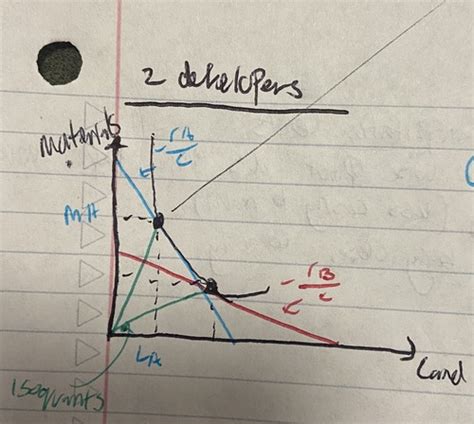 2 developers
Materials
- rb
c
MA
- rB
c
LA
Land
isoquants